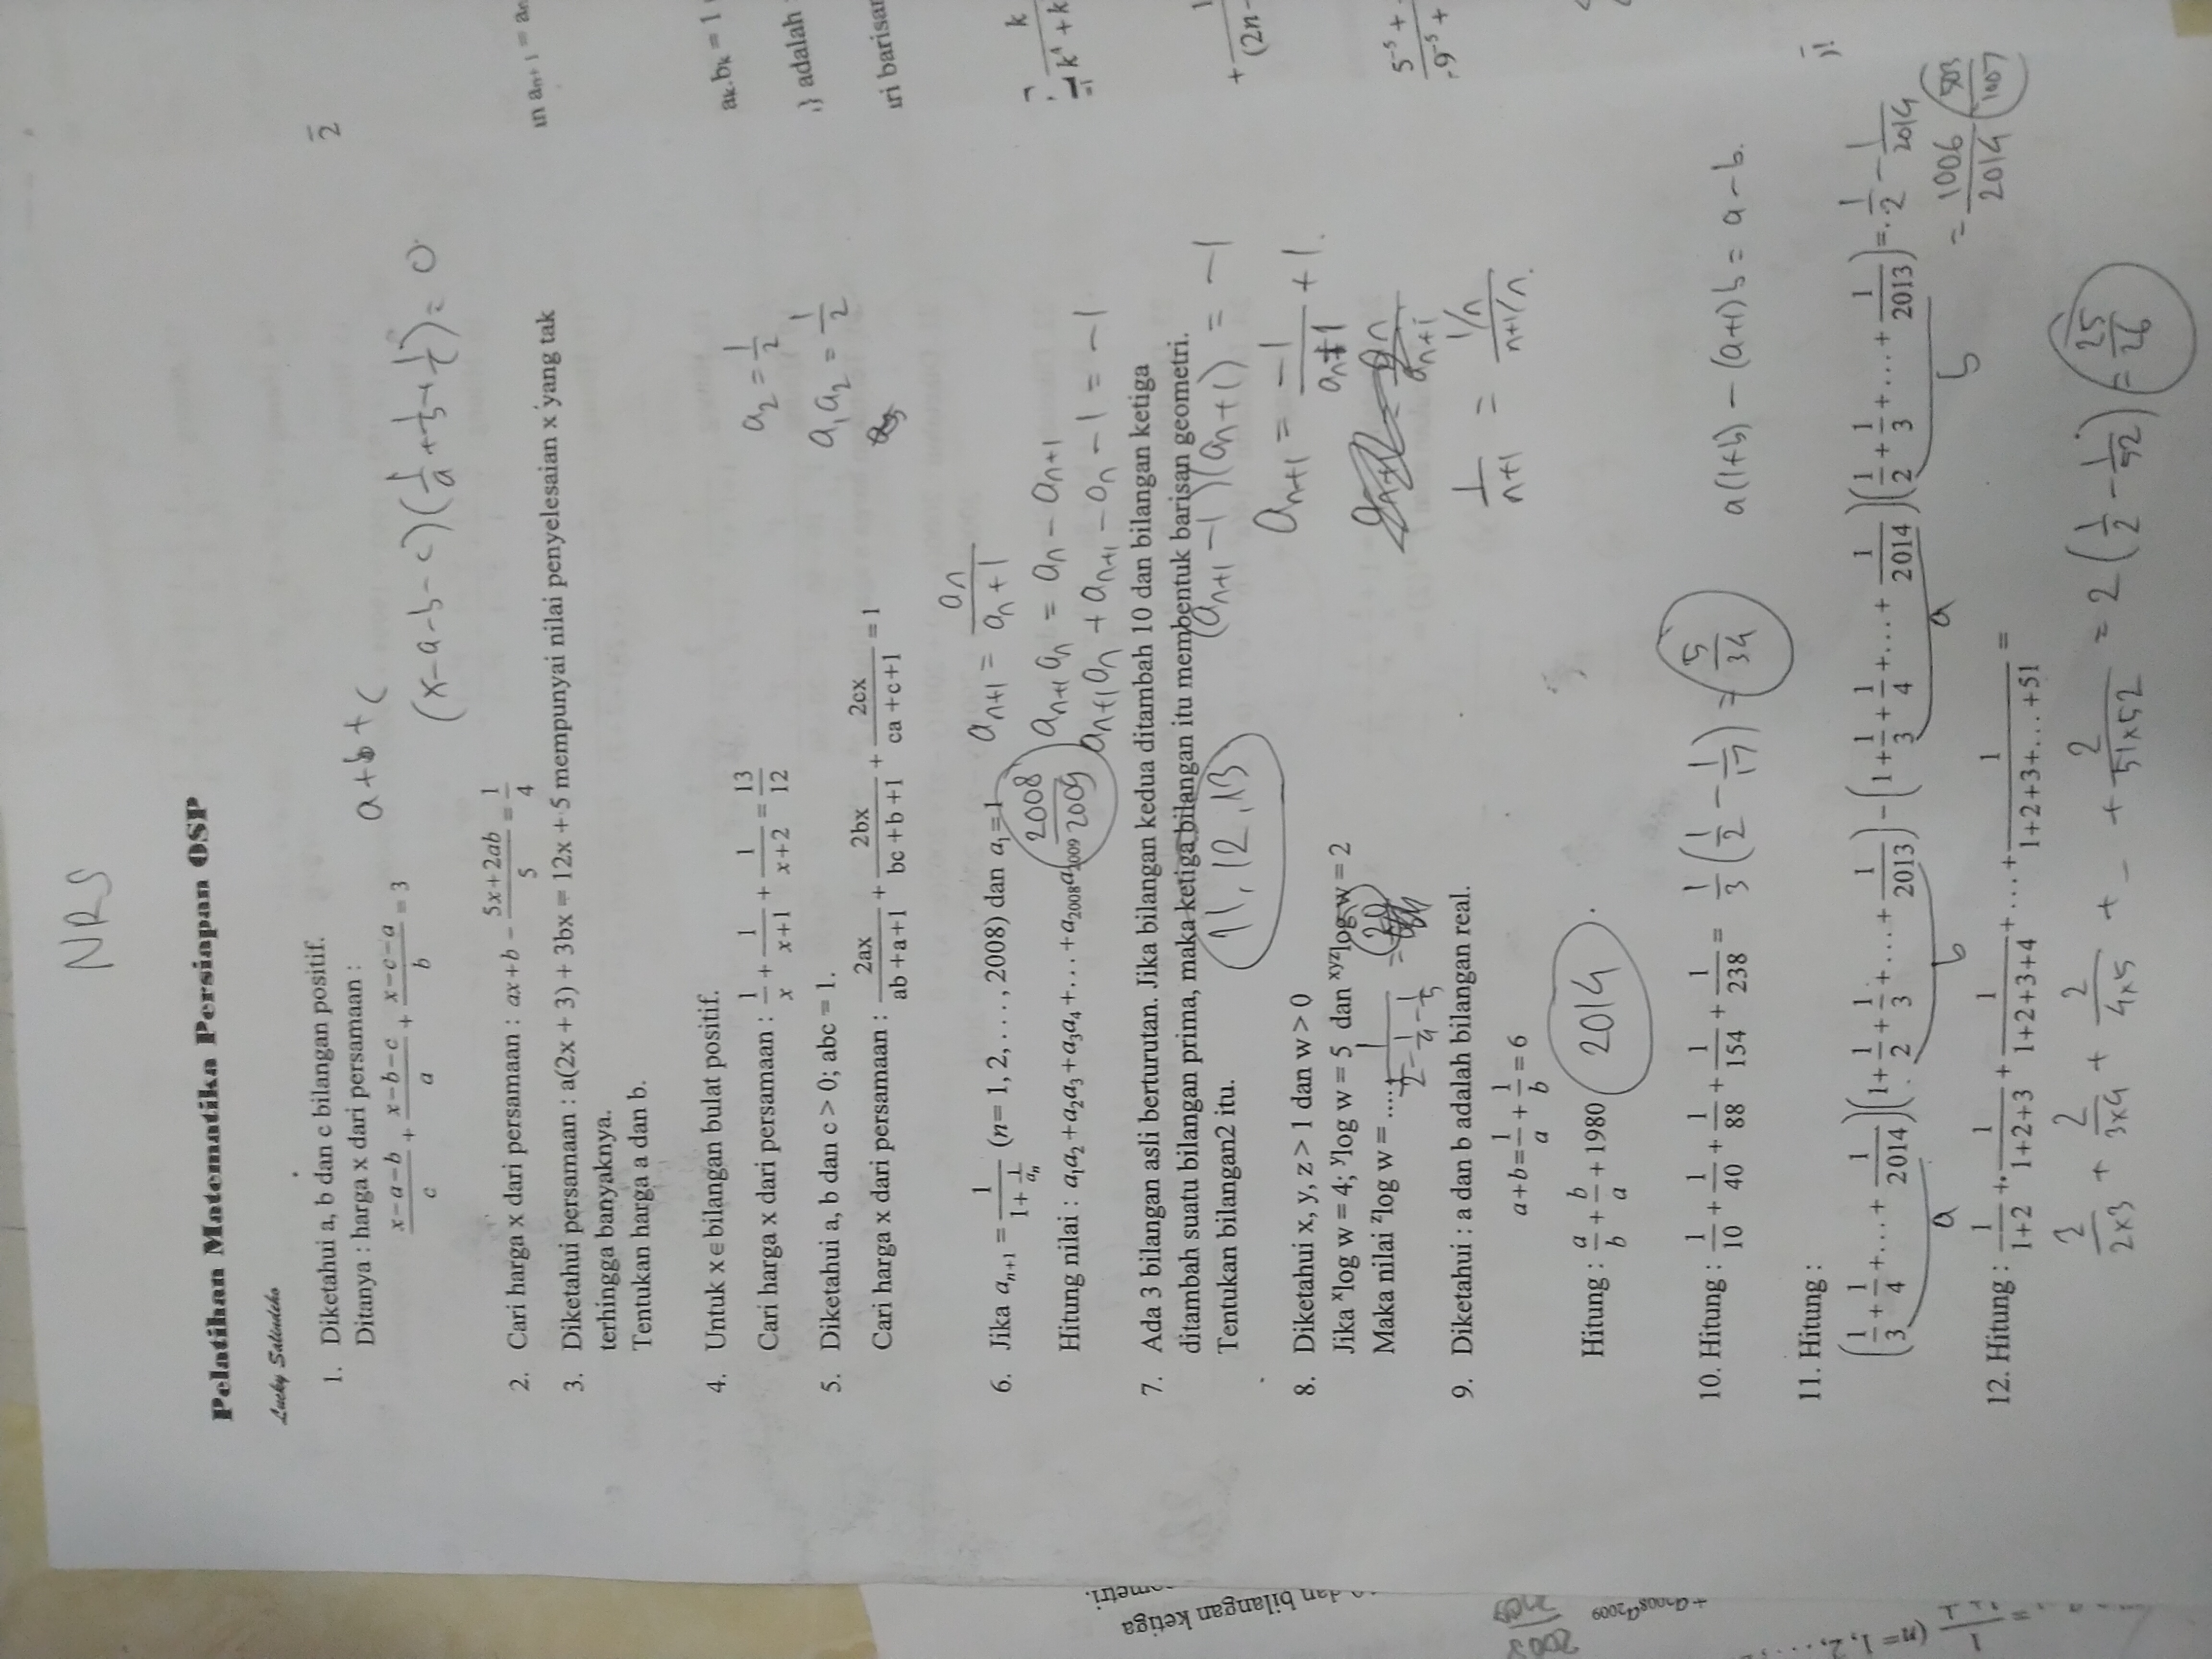 NRS
Pelatihan Matematika Persiapan OSP
Lucky Salindeho
1. Diketahui a, b dan c bilangan positif.
Ditanya : harga x dari persamaan :
(x-a-b)/c + (x-b-c)/a + (x-c-a)/b = 3
a+b+c
(x-a-b-c)(1/a + 1/b + 1/c) = 0
2. Cari harga x dari persamaan : ax+b - (5x+2ab)/5 = 1/4
3. Diketahui persamaan : a(2x + 3) + 3bx = 12x + 5 mempunyai nilai penyelesaian x yang tak
terhingga banyaknya.
Tentukan harga a dan b.
4. Untuk x∈bilangan bulat positif.
Cari harga x dari persamaan : 1/x + 1/(x+1) + 1/(x+2) = 13/12
a₂ = 1/2
5. Diketahui a, b dan c > 0; abc = 1.
a₁a₂ = 1/2
Cari harga x dari persamaan : 2ax/(ab+a+1) + 2bx/(bc+b+1) + 2cx/(ca+c+1) = 1
6. Jika aₙ₊₁ = 1/(1+1/aₙ) (n= 1, 2, . . . , 2008) dan a₁=1
aₙ₊₁ = aₙ/(aₙ+1)
Hitung nilai : a₁a₂+a₂a₃+a₃a₄+...+a₂₀₀₈a₂₀₀₉ 2008/2009
aₙ₊₁aₙ = aₙ - aₙ₊₁
aₙ₊₁aₙ + aₙ₊₁ - aₙ - 1 = -1
7. Ada 3 bilangan asli berturutan. Jika bilangan kedua ditambah 10 dan bilangan ketiga
ditambah suatu bilangan prima, maka ketiga bilangan itu membentuk barisan geometri.
Tentukan bilangan2 itu. 11, 12, 13
(aₙ₊₁ - 1)(aₙ+1) = -1
aₙ₊₁ = -1/(aₙ+1) + 1.
8. Diketahui x, y, z > 1 dan w > 0
Jika ˣlog w = 4; ʸlog w = 5 dan ˣʸᶻlog w = 2
Maka nilai ᶻlog w = .... 1/(1/2 - 1/4 - 1/5) = 20
1/(n+1) = (1/n)/(n+1/n).
9. Diketahui : a dan b adalah bilangan real.
a+b = 1/a + 1/b = 6
Hitung : a/b + b/a + 1980 2014.
10. Hitung : 1/10 + 1/40 + 1/88 + 1/154 + 1/238 = 1/3 (1/2 - 1/17) = 5/34
a(1+b) - (a+1)b = a - b.
11. Hitung :
(1/3 + 1/4 +...+ 1/2014)(1+ 1/2 + 1/3 +...+ 1/2013) - (1+ 1/3 + 1/4 +...+ 1/2014)(1/2 + 1/3 +...+ 1/2013) = 1/2 - 1/2014
a b a b
= 1006/2014 503/1007
12. Hitung : 1/(1+2) + 1/(1+2+3) + 1/(1+2+3+4) +...+ 1/(1+2+3+...+51) =
2/(2x3) + 2/(3x4) + 2/(4x5) + - + 2/(51x52) = 2 (1/2 - 1/52) = 25/26
dan bilangan ketiga
ometri.
2008/2009
+a₂₀₀₈a₂₀₀₉
(n= 1, 2, . . . ,
aₖ.bₖ = 1
} adalah
barisan